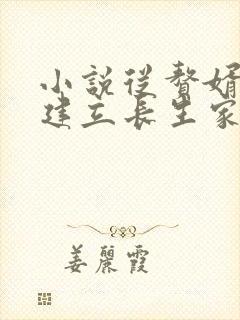 小說從贅婿
建立長生家
姜麗霞